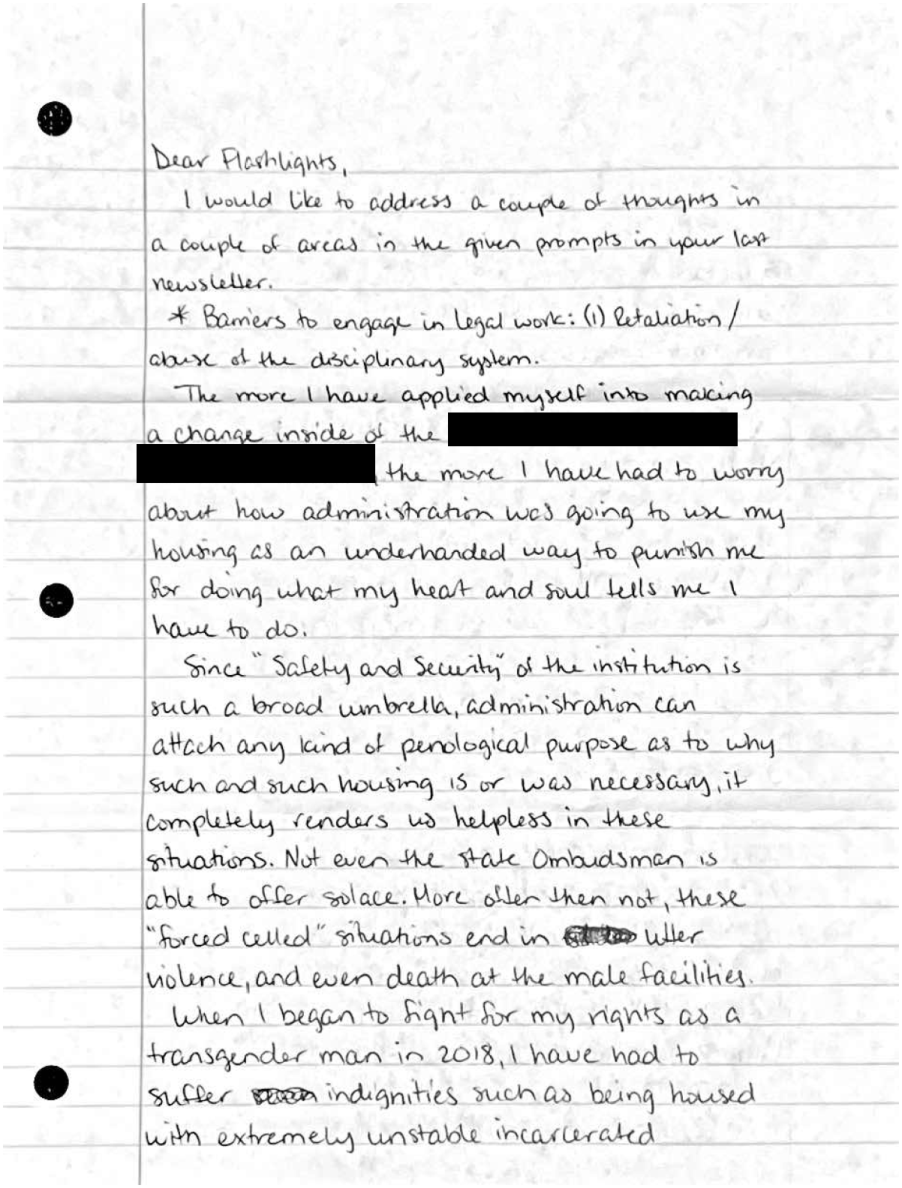 Dear Flashlights,
I would like to address a couple of thoughts in
a couple of areas in the given prompts in your last
newsletter.
* Barriers to engage in legal work: (1) Retaliation /
abuse of the disciplinary system.
The more I have applied myself into making
a change inside of the
the more I have had to worry
about how administration was going to use my
housing as an underhanded way to punish me
for doing what my heart and soul tells me I
have to do.
Since "Safety and Security" of the institution is
such a broad umbrella, administration can
attach any kind of penological purpose as to why
such and such housing is or was necessary, it
completely renders us helpless in these
situations. Not even the state Ombudsman is
able to offer solace. More often then not, these
"forced celled" situations end in utter
violence, and even death at the male facilities.
When I began to fight for my rights as a
transgender man in 2018, I have had to
suffer indignities such as being housed
with extremely unstable incarcerated